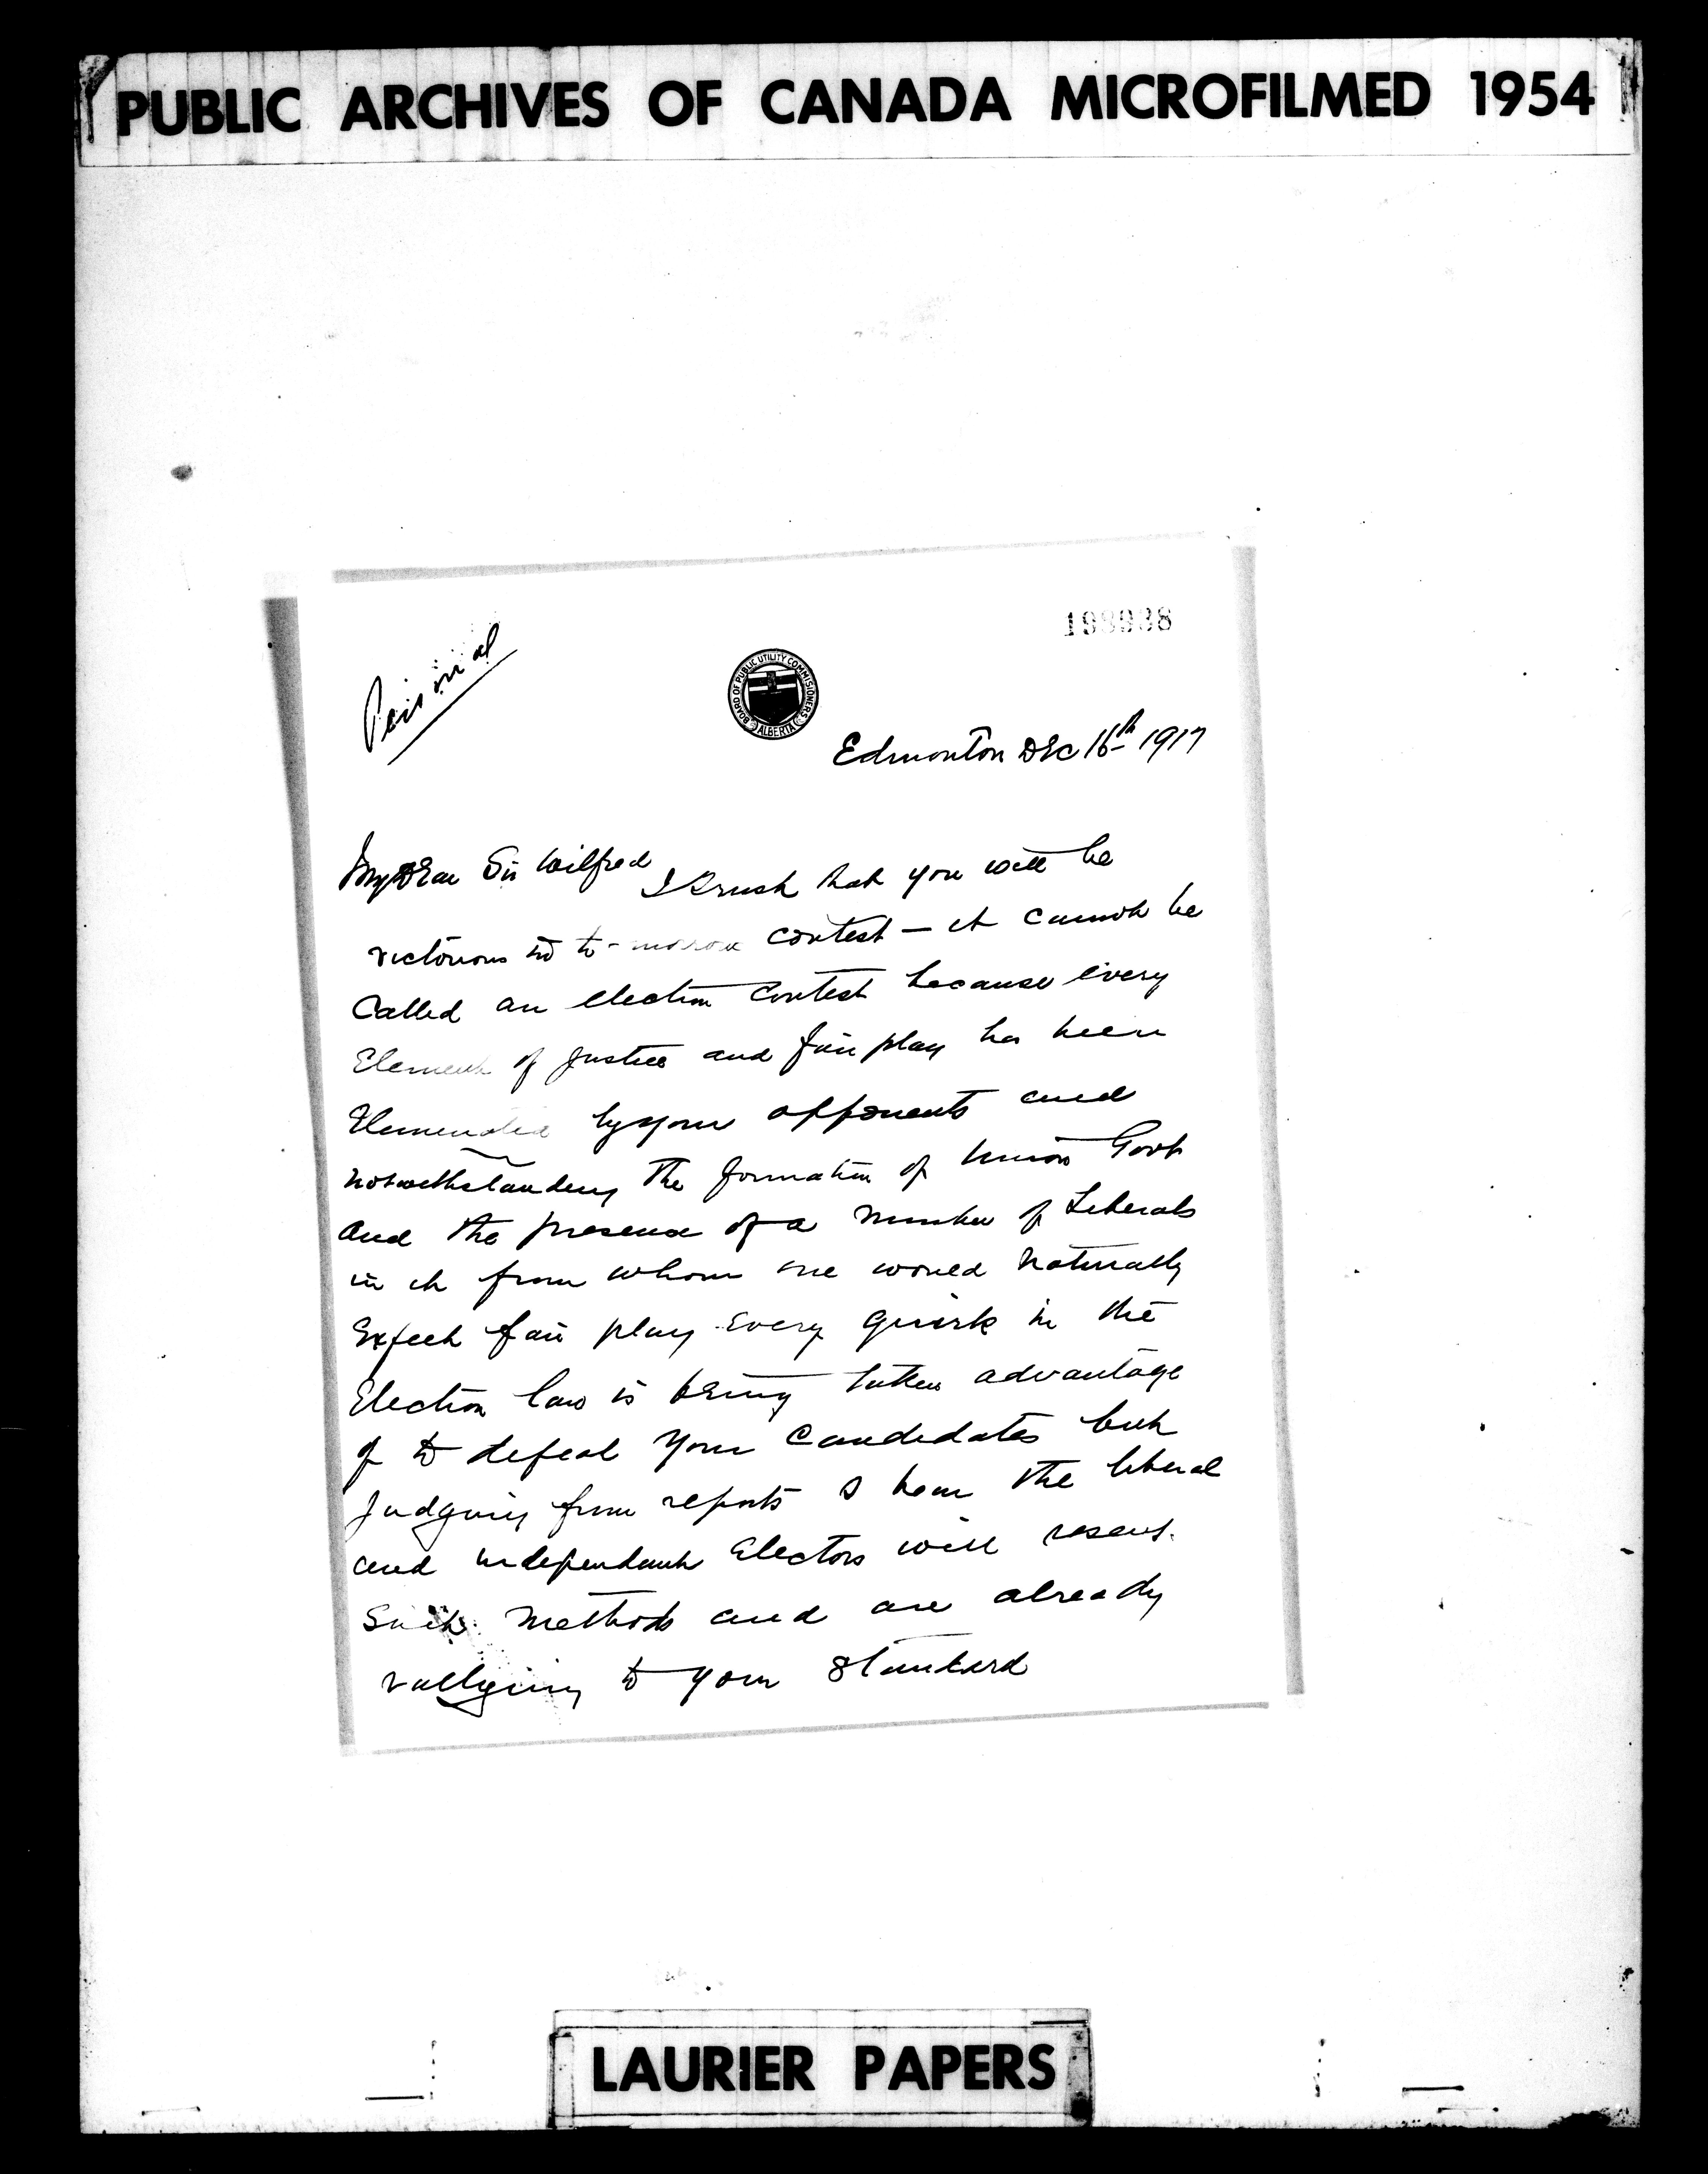 PUBLIC ARCHIVES OF CANADA MICROFILMED 1954
198938
Personal
BOARD OF PUBLIC UTILITY COMMISSIONERS
ALBERTA
Edmonton Dec 16th 1917
My Dear Sir Wilfred
I trust that you will be
victorious in to-morrow contest — it cannot be
called an election contest because every
Element of justice and fair play has been
by your opponents and
notwithstanding the formation of Union Govt
and the presence of a number of Liberals
in it from whom one would naturally
Expect fair play every quirk in the
Election law is being taken advantage
of to defeat your candidates but
judging from reports I hear the liberal
and independant Electors will resent
such methods and are already
rallying to your standard
LAURIER PAPERS